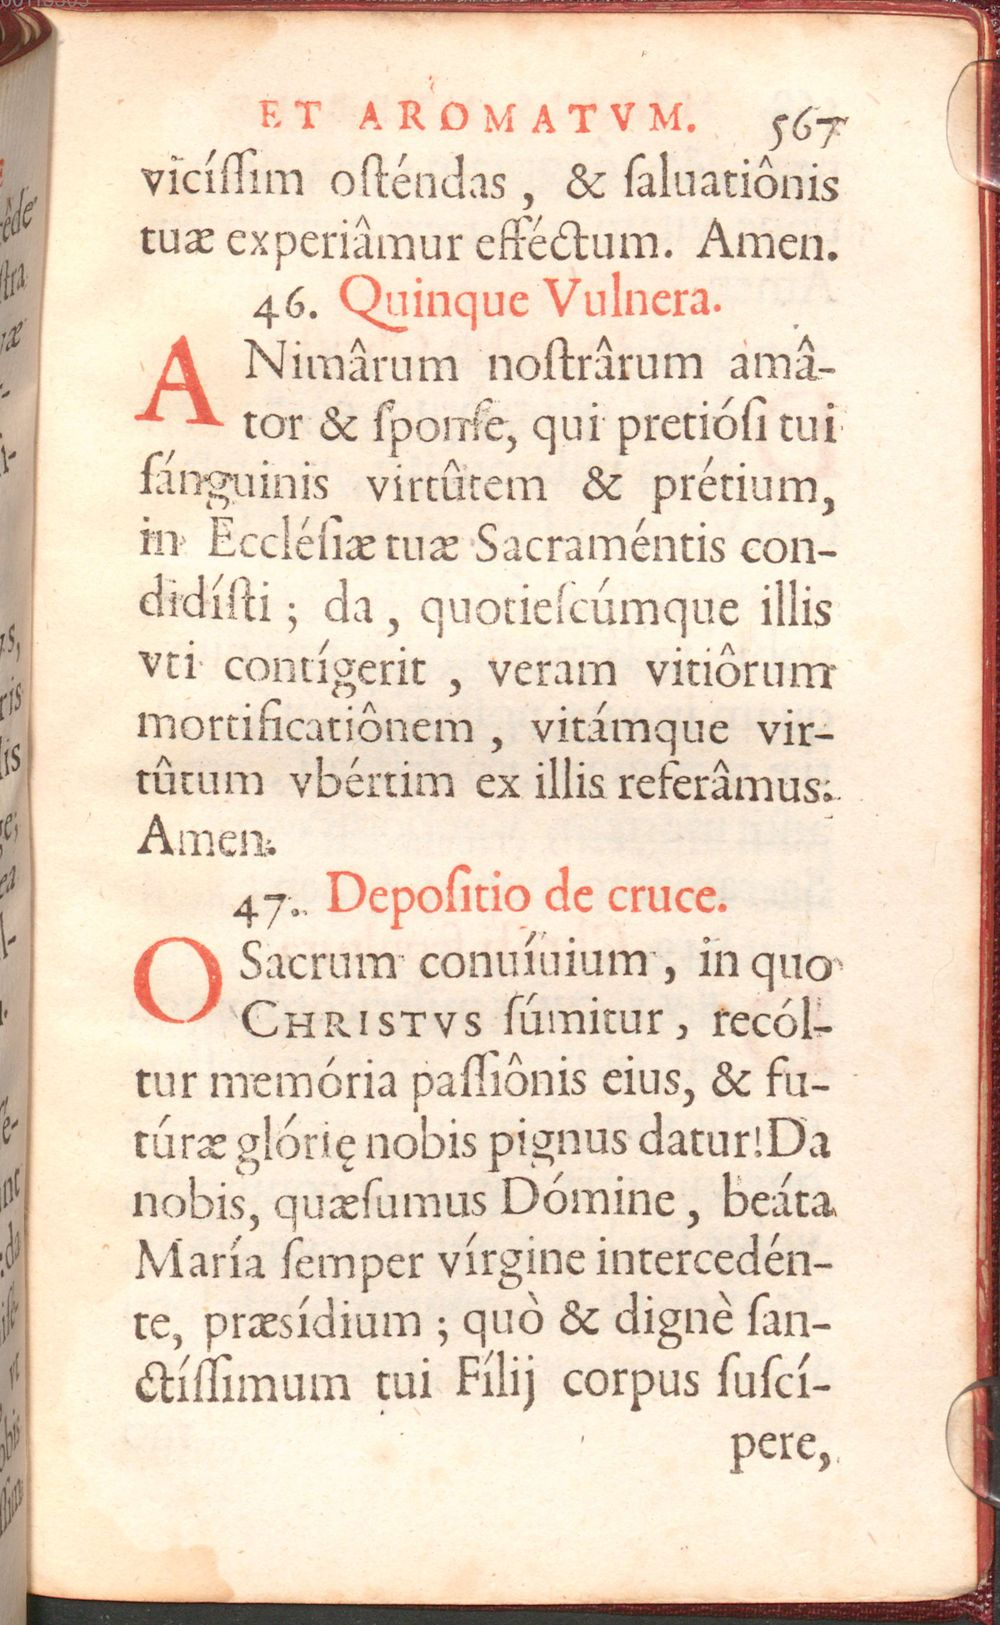 ET AROMATVM. 567
vicíſſim oſténdas, & ſaluatiônis
tuæ experiâmur efféctum. Amen.
46. Quinque Vulnera.
ANimârum noſtrârum amâ-
tor & ſponſe, qui pretióſi tui
ſánguinis virtûtem & prétium,
in Eccléſiæ tuæ Sacraméntis con-
didíſti; da, quotieſcúmque illis
vti contígerit, veram vitiôrum
mortificatiônem, vitámque vir-
tûtum vbértim ex illis referâmus.
Amen.
47. Depoſitio de cruce.
O Sacrum conuíuium, in quo
CHRISTVS ſúmitur, recól-
tur memória paſſiônis eius, & fu-
túræ glórię nobis pignus datur! Da
nobis, quæſumus Dómine, beáta
María ſemper vírgine intercedén-
te, præsídium; quò & dignè ſan-
ctíſſimum tui Fílij corpus ſuſcí-
pere,